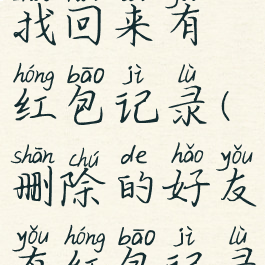 找回来有
hóng bāo jì lù
红包记录(
shān chú de hǎo yǒu
删除的好友
yǒu hóng bāo jì lù
有红包记录